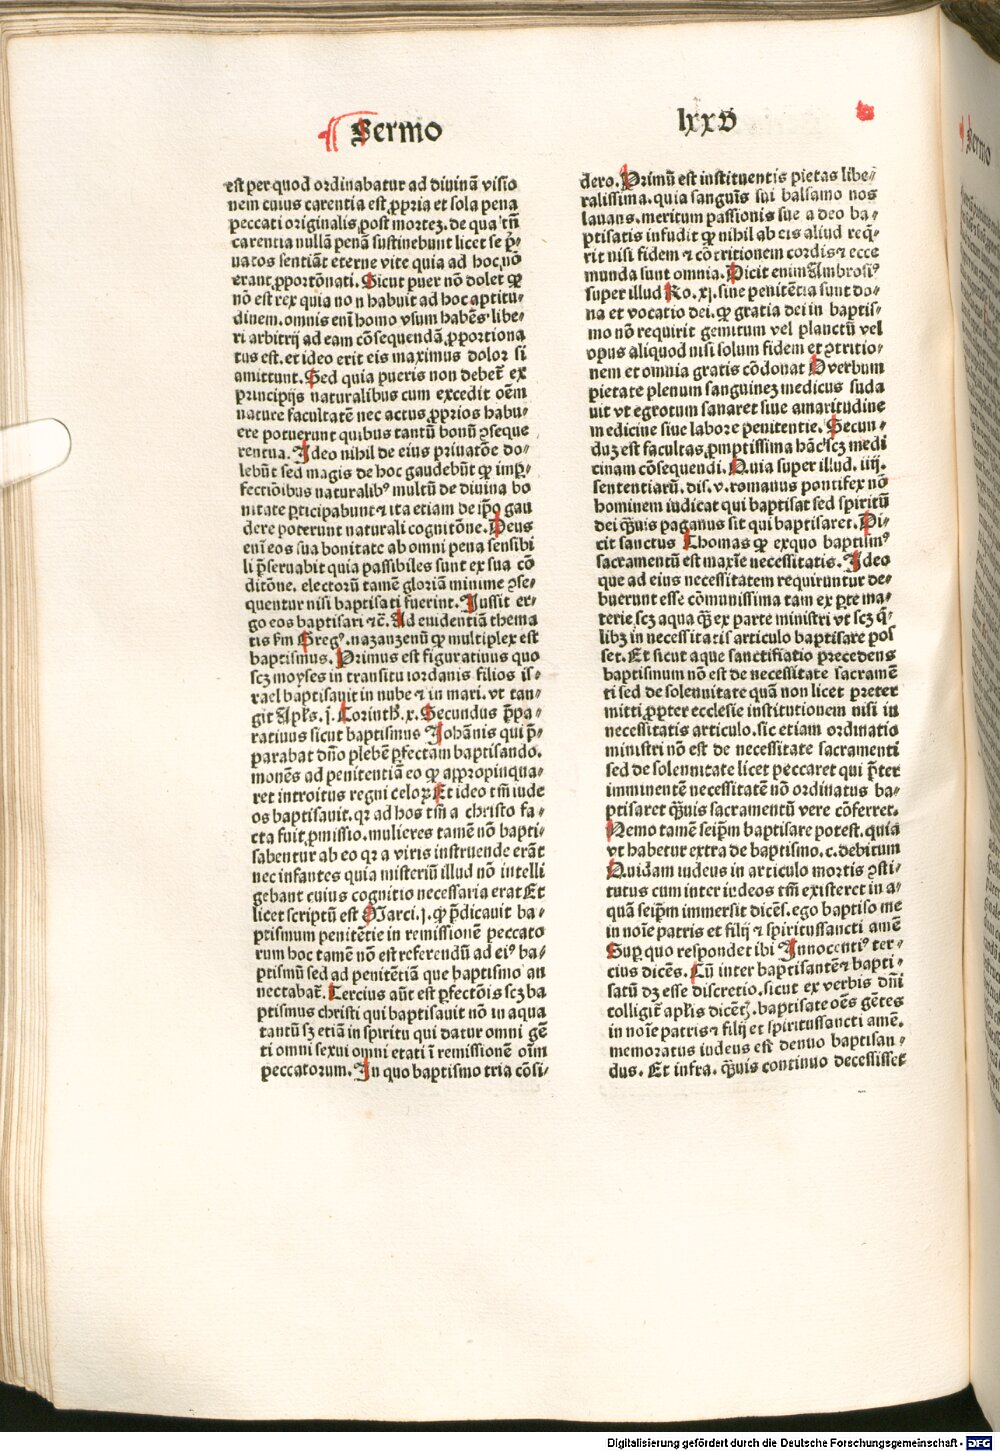 Sermo
lxxv
est per quod ordinabatur ad diuinā visio
nem cuius carentia est ꝓpria et sola pena
peccati originalis post mortez. de qua tn̄
carentia nullā penā sustinebunt licet se p̄-
uatos sentiāt eterne vite quia ad hoc nō
erant ꝓportōnati. Sicut puer nō dolet ꝙ
nō est rex quia non habuit ad hoc aptitu-
dinem. omnis eni homo vsum habēs libe-
ri arbitrij ad eam cōsequendā ꝓportiona
tus est. et ideo erit eis maximus dolor si
amittunt. Sed quia pueris non debet ex
principijs naturalibus cum excedit oēm
nature facultatē nec actus ꝓprios habu-
ere potuerunt quibus tantū bonū ꝯseque
rentua. Ideo nihil de eius priuatōe do-
lebūt sed magis de hoc gaudebūt ꝙ imꝑ-
fectiōibus naturalibꝰ multū de diuina bo
nitate ꝑticipabunt ⁊ ita etiam de ip̄o gau
dere poterunt naturali cognitōne. Deus
eni eos sua bonitate ab omni pena sensibi
li p̄seruabit quia passibiles sunt ex sua cō
ditōne. electorū tamē gloriam minime ꝯse-
quentur nisi baptisati fuerint. Iussit er-
go eos baptisari ⁊c̄. Ad euidentiā thema
tis fm Gregꝰ. nazanzenū ꝙ multiplex est
baptismus. Primus est figuratiuus quo
scz moyses in transitu iordanis filios is-
rael baptisauit in nube ⁊ in mari. vt tan-
git Apl̄s. j. Corinth. x. Secundus p̄pa-
ratiuus sicut baptismus Johānis qui p̄-
parabat dn̄o plebē ꝑfectam baptisando.
monēs ad penitentiā eo ꝙ appropinqua-
ret introitus regni celoꝝ Et ideo tm̄ iude
os baptisauit. qꝛ ad hos tm̄ a christo fa-
cta fuit ꝓmissio. mulieres tamē nō bapti-
sabentur ab eo qꝛ a viris instruende erāt
nec infantes quia misteriū illud nō intelli
gebant cuius cognitio necessaria erat Et
licet scriptū est Marci. j. ꝙ p̄dicauit ba-
ptismum penitētie in remissionē peccato
rum hoc tamē nō est referendū ad eiꝰ ba-
ptismū sed ad penitētiā que baptismo an
nectabat̄. Tercius aūt est ꝑfectōis scz ba
ptismus christi qui baptisauit nō in aqua
tantū sz etiā in spiritu qui datur omni gē
ti omni sexui omni etati ī remissionē oīm
peccatorum. In quo baptismo tria cōsi-
dero. Primū est instituentis pietas libe-
ralissima. quia sanguīs sui balsamo nos
lauans. meritum passionis sue a deo ba-
ptisatis infudit ꝙ nihil ab eis aliud req̄-
rit nisi fidem ⁊ cōtritionem cordis ⁊ ecce
munda sunt omnia. Dicit enim Ambrosiꝰ
super illud Ro. xj. sine penitētia sunt do-
na et vocatio dei. ꝙ gratia dei in baptis-
mo nō requirit gemitum vel planctū vel
opus aliquod nisi solum fidem et ꝯtritio-
nem et omnia gratis cōdonat O verbum
pietate plenum sanguinez medicus suda
uit vt egrotum sanaret siue amaritudine
medicine siue labore penitentie. Secun-
duz est facultas ꝓmptissima hāc scz medi
cinam cōsequendi. Quia super illud. iiij.
sententiarū. dis. v. romanus pontifex nō
hominem iudicat qui baptisat sed spiritū
dei q̄uis paganus sit qui baptisaret. Di-
cit sanctus Thomas ꝙ exquo baptismꝰ
sacramentū est maxīe necessitatis. Ideo
que ad eius necessitatem requiruntur de-
buerunt esse cōmunissima tam ex ꝑte ma-
terie scz aqua q̄ ex parte ministri vt scz q̄-
libz in necessitatis articulo baptisare pos
set. Et sicut aque sanctifiatio precedens
baptismum nō est de necessitate sacramē
ti sed de solennitate quā non licet preter
mitti ꝓpter ecclesie institutionem nisi in
necessitatis articulo. sic etiam ordinatio
ministri nō est de necessitate sacramenti
sed de solennitate licet peccaret qui p̄ter
imminentē necessitatē nō ordinatus ba-
ptisaret q̄uis sacramentū vere cōferret.
Nemo tamē seip̄m baptisare potest. quia
vt habetur extra de baptismo. c. debitum
Quidam iudeus in articulo mortis ꝯsti-
tutus cum inter iudeos tm̄ existeret in a-
quā seip̄m immersit dicēs. ego baptiso me
in noīe patris et filij ⁊ spiritussancti amē
Suꝑ quo respondet ibi Innocentiꝰ ter-
cius dicēs. Cū inter baptisantē ⁊ bapti-
satū dz esse discretio. sicut ex verbis dn̄i
colligit̄ apl̄is dicētꝭ. baptisate oēs gētes
in noīe patris ⁊ filij et spiritussancti amē.
memoratus iudeus est denuo baptisan-
dus. Et infra. q̄uis continuo decessisset
Sermo
Digitalisierung gefördert durch die Deutsche Forschungsgemeinschaft - DFG